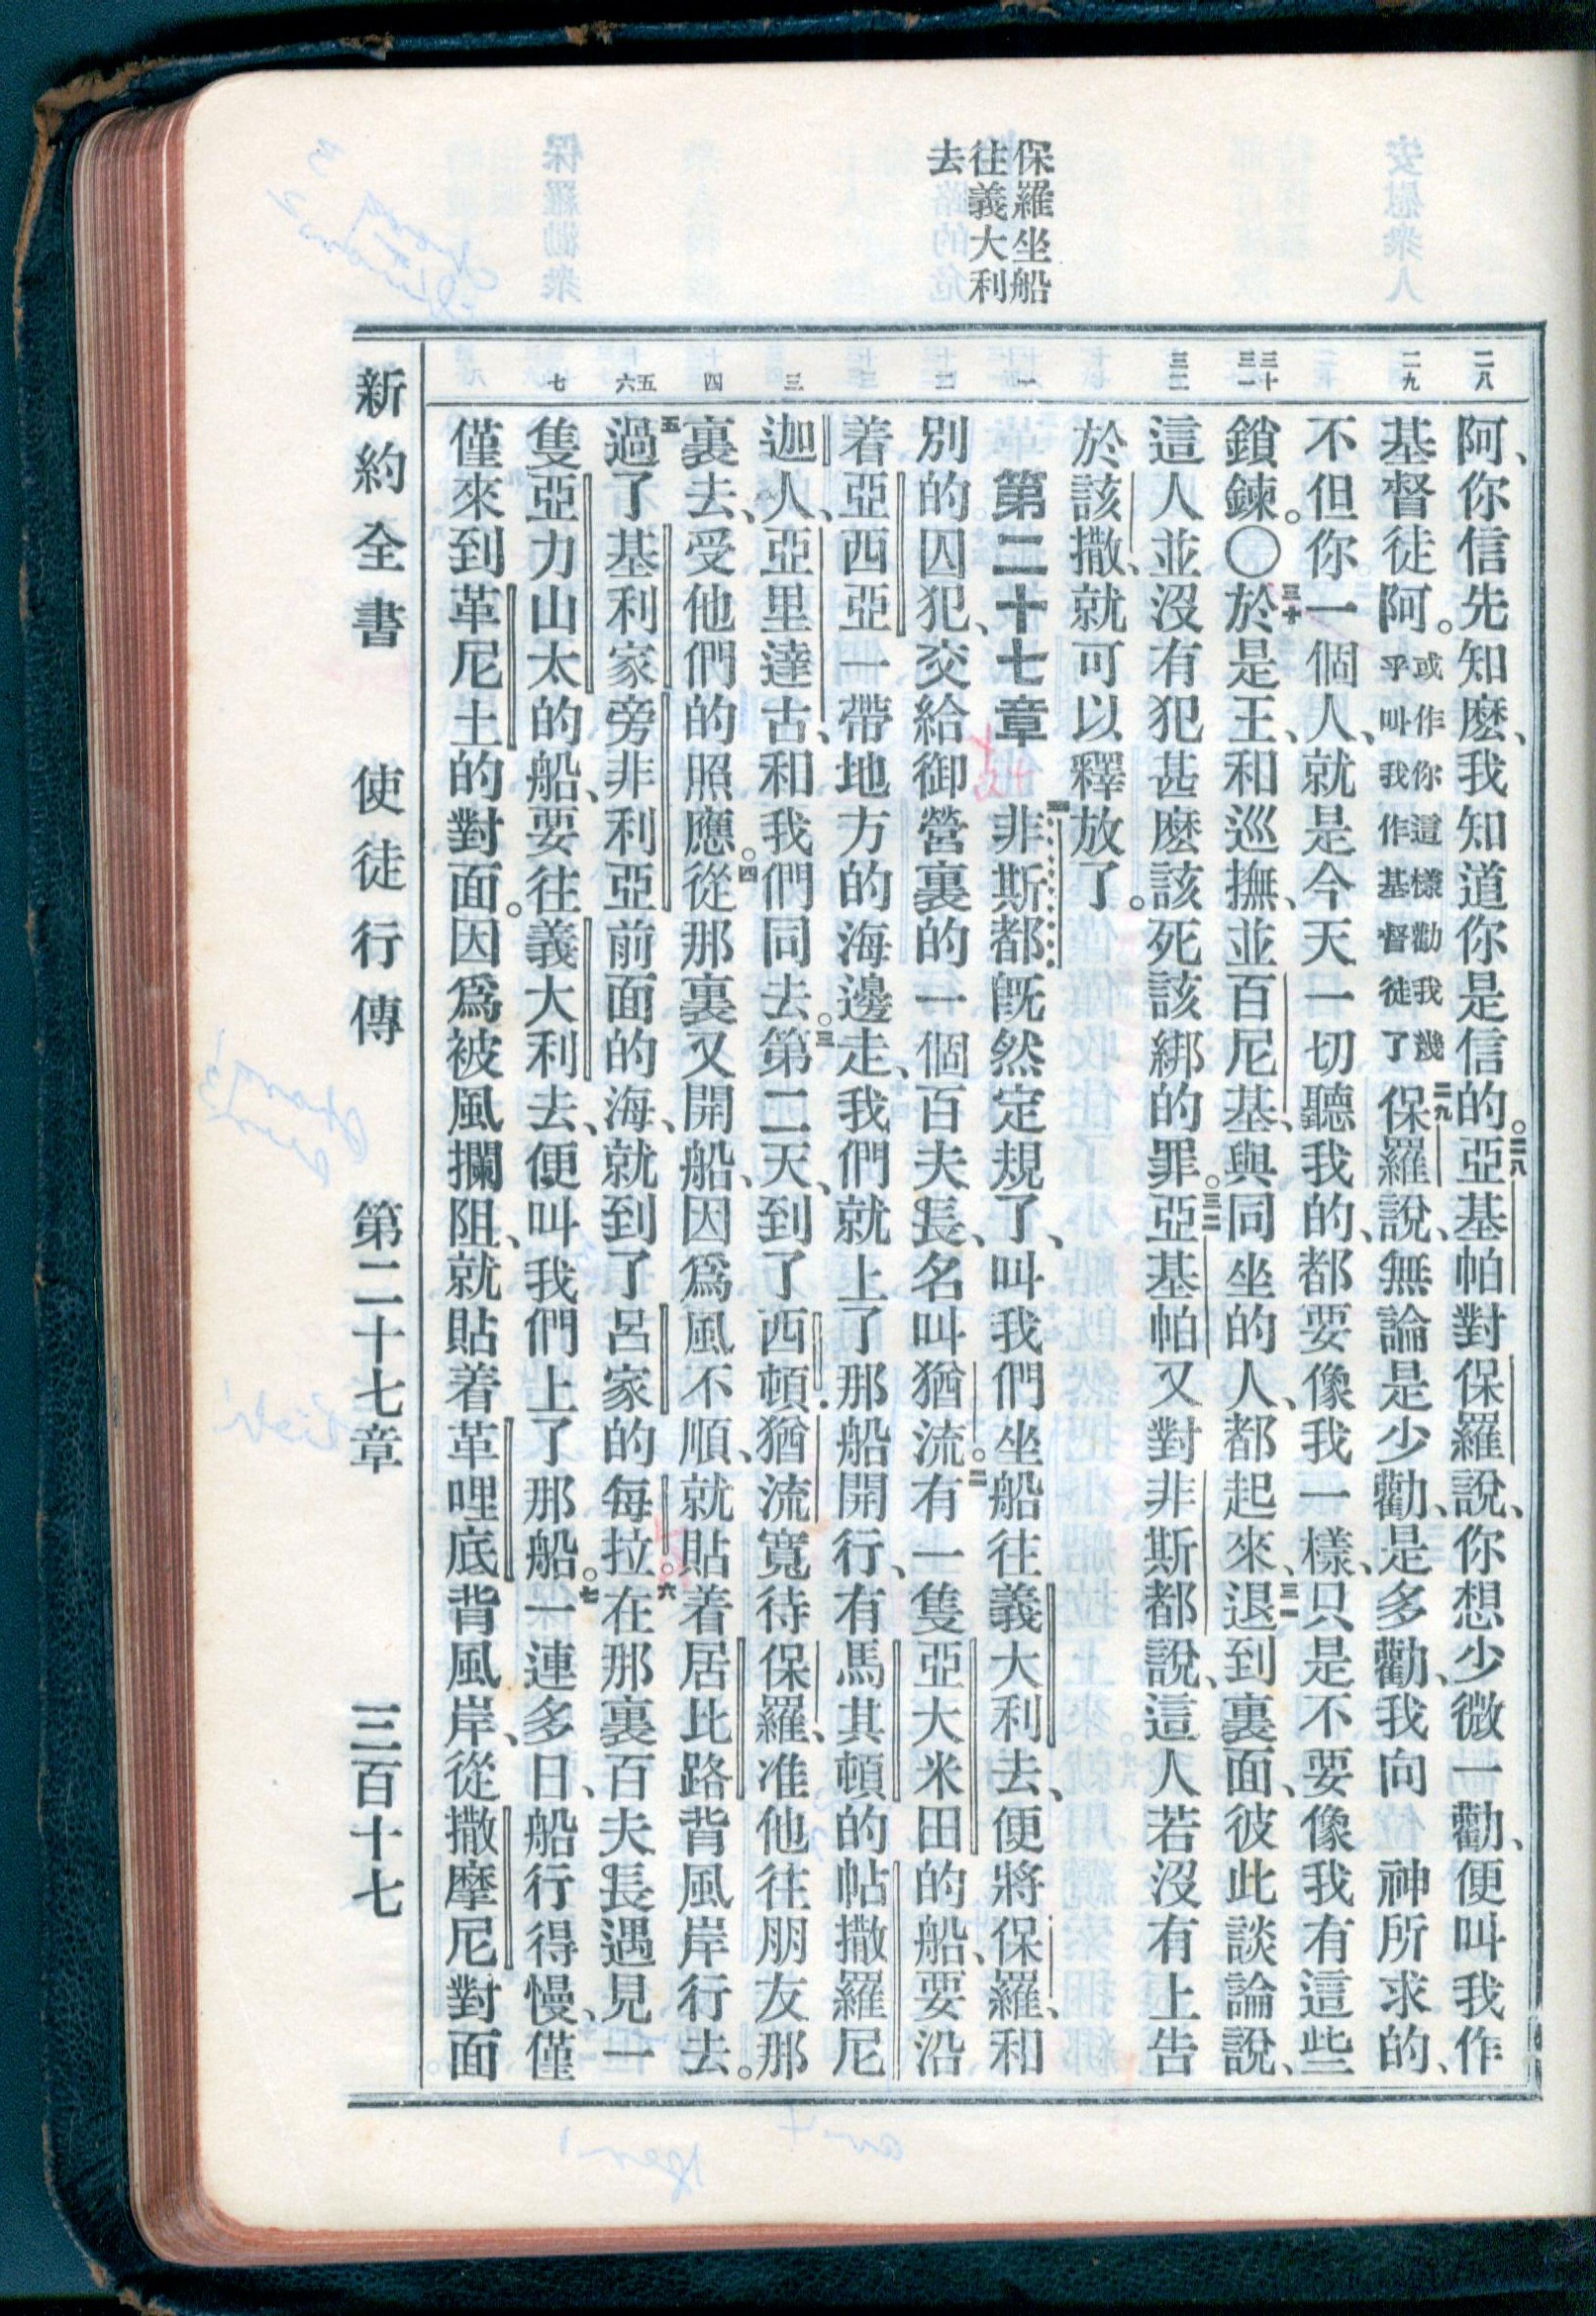 保羅坐船
往義大利
去
二八
二九
三十
三一
三二
一
二
三
四
五
六
七
阿、你信先知麽、我知道你是信的。二八亞基帕對保羅說、你想少微一勸、便叫我作
基督徒阿。或作你這樣勸我幾乎叫我作基督徒了二九保羅說、無論是少勸、是多勸、我向 神所求的、
不但你一個人、就是今天一切聽我的、都要像我一樣、只是不要像我有這些
鎖鍊。〇三十於是王、和巡撫、並百尼基、與同坐的人、都起來、三一退到裏面、彼此談論說、
這人並沒有犯甚麽該死該綁的罪。三二亞基帕又對非斯都說、這人若沒有上告
於該撒、就可以釋放了。
第二十七章 一非斯都旣然定規了、叫我們坐船往義大利去、便將保羅、和
別的囚犯、交給御營裏的一個百夫長、名叫猶流。二有一隻亞大米田的船、要沿
着亞西亞一帶地方的海邊走、我們就上了那船開行、有馬其頓的帖撒羅尼
迦人、亞里達古、和我們同去。三第二天、到了西頓.猶流寬待保羅、准他往朋友那
裏去、受他們的照應。四從那裏又開船、因爲風不順、就貼着居比路背風岸行去。
五過了基利家旁非利亞前面的海、就到了呂家的每拉。六在那裏百夫長遇見一
隻亞力山太的船、要往義大利去、便叫我們上了那船。七一連多日、船行得慢、僅
僅來到革尼土的對面。因爲被風攔阻、就貼着革哩底背風岸、從撒摩尼對面
新約全書 使徒行傳 第二十七章 三百十七